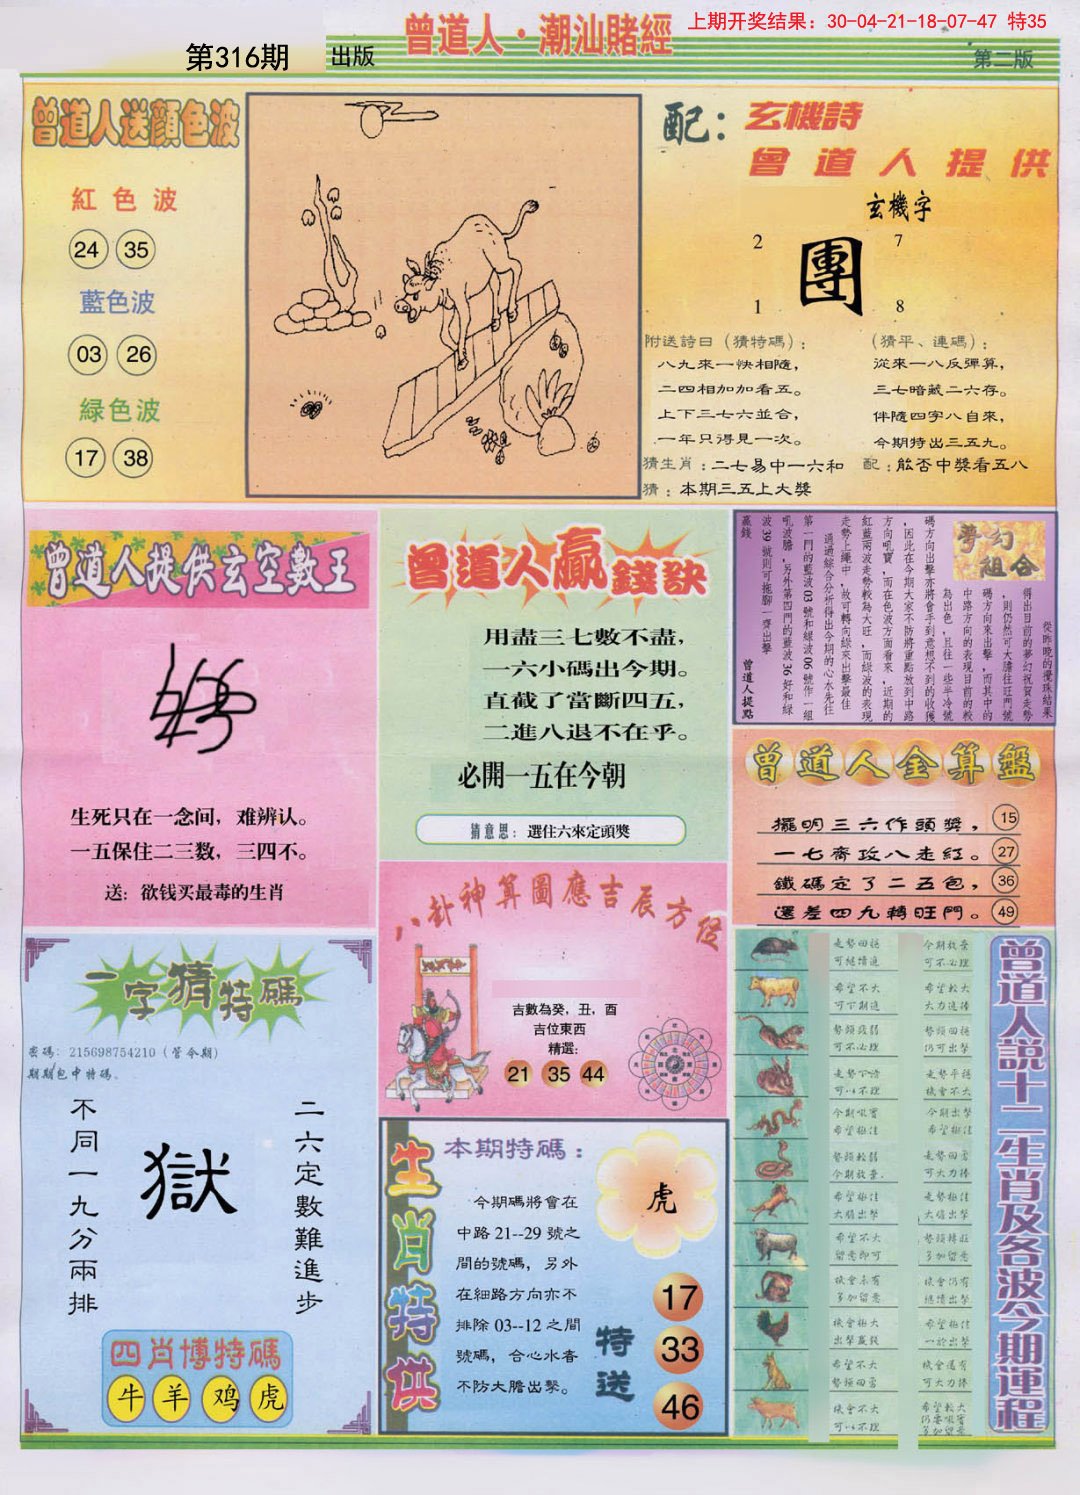 上期开奖结果：30-04-21-18-07-47 特35
曾道人·潮汕賭經
第316期
出版
第二版
曾道人送顔色波
紅色波
24 35
藍色波
03 26
緑色波
17 38
配：玄機詩
曾道人提供
玄機字
2 7
團
1 8
附送詩曰（猜特碼）：
八九來一快相隨，
二四相加加看五。
上下三七六並合，
一年只得見一次。
（猜平、連碼）：
從來一八反彈算，
三七暗藏二六存。
伴隨四字八自來，
今期特出三五九。
猜生肖：二七易中一六和
配：能否中獎看五八
猜：本期三五上大獎
曾道人提供玄空數王
生死只在一念间，难辨认。
一五保住二三数，三四不。
送：欲钱买最毒的生肖
曾道人贏錢訣
用盡三七數不盡，
一六小碼出今期。
直截了當斷四五，
二進八退不在乎。
必開一五在今朝
猜意思：選住六來定頭獎
夢幻組合
從昨晚的攪珠結果
得出目前的夢幻祝賀走勢
，則仍然可大膽往旺門號
碼方向來出擊，而其中的
中路方向的表現目前的較
為出色，且往一些半冷號
碼方向出擊亦將會手到意想不到的收獲
，因此在今期大家不防將重點放到中路
方向吼實，而在色波方面看來，近期的
紅藍兩波走勢較為大旺，而綠波的表現
走勢上繩中，故可轉向綠來出擊最佳
通過綜合分析得出今期的心水先往
第一門的藍波03號和綠波06號作一組
吼波膽，另外第四門的藍波36好和綠
波39號則可拖腳一齊出擊
贏錢
曾道人提點
曾道人金算盤
擺明三六作頭獎，15
一七齊攻八走紅。27
鐵碼定了二五包，36
還差四九轉旺門。49
八卦神算圖應吉辰方位
吉數為癸，丑，酉
吉位東西
精選：
21 35 44
一字猜特碼
密碼：215698754210（管今期）
期期包中特碼、
二六定數難進步
獄
不同一九分兩排
四肖博特碼
牛 羊 鸡 虎
生肖特供
本期特碼：
今期碼將會在
中路21--29號之
間的號碼，另外
在細路方向亦不
排除03--12之間
號碼，合心水者
不防大膽出擊。
虎
特送
17
33
46
曾道人說十二生肖及各波今期運程
走勢回穩
可繼續追
希望不大
可下期追
勢頭疲弱
可不必理
今期放棄
可不必理
希望較大
大力追捧
勢頭回穩
仍可出擊
走勢平穩
機會不大
今期出擊
勢頭較弱
今期放棄
走勢回勇
可大力捧
大膽出擊
希望不大
留意即可
勢頭轉旺
多加留意
機會未有
多加留意
機會仍有
繼續出擊
機會極大
出擊贏錢
希望不大
勢頭回勇
機會還有
可大力捧
機會不大
可以不理
希望較大
仍要吼實
多加留意